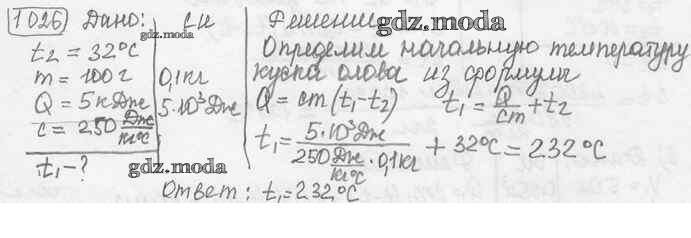 1026 Дано: СИ Решение
gdz.moda gdz.moda
t₂ = 32°C
m = 100 г 0,1 кг
Q = 5 кДж 5·10³ Дж
c = 250 Дж/кг°C
t₁ - ?
gdz.moda
Определим начальную температуру
куска олова из формулы
Q = cm(t₁-t₂) t₁ = Q/cm + t₂
t₁ = 5·10³ Дж / 250 Дж/кг°C · 0,1 кг + 32°C = 232°C
gdz.moda
Ответ: t₁ = 232°C